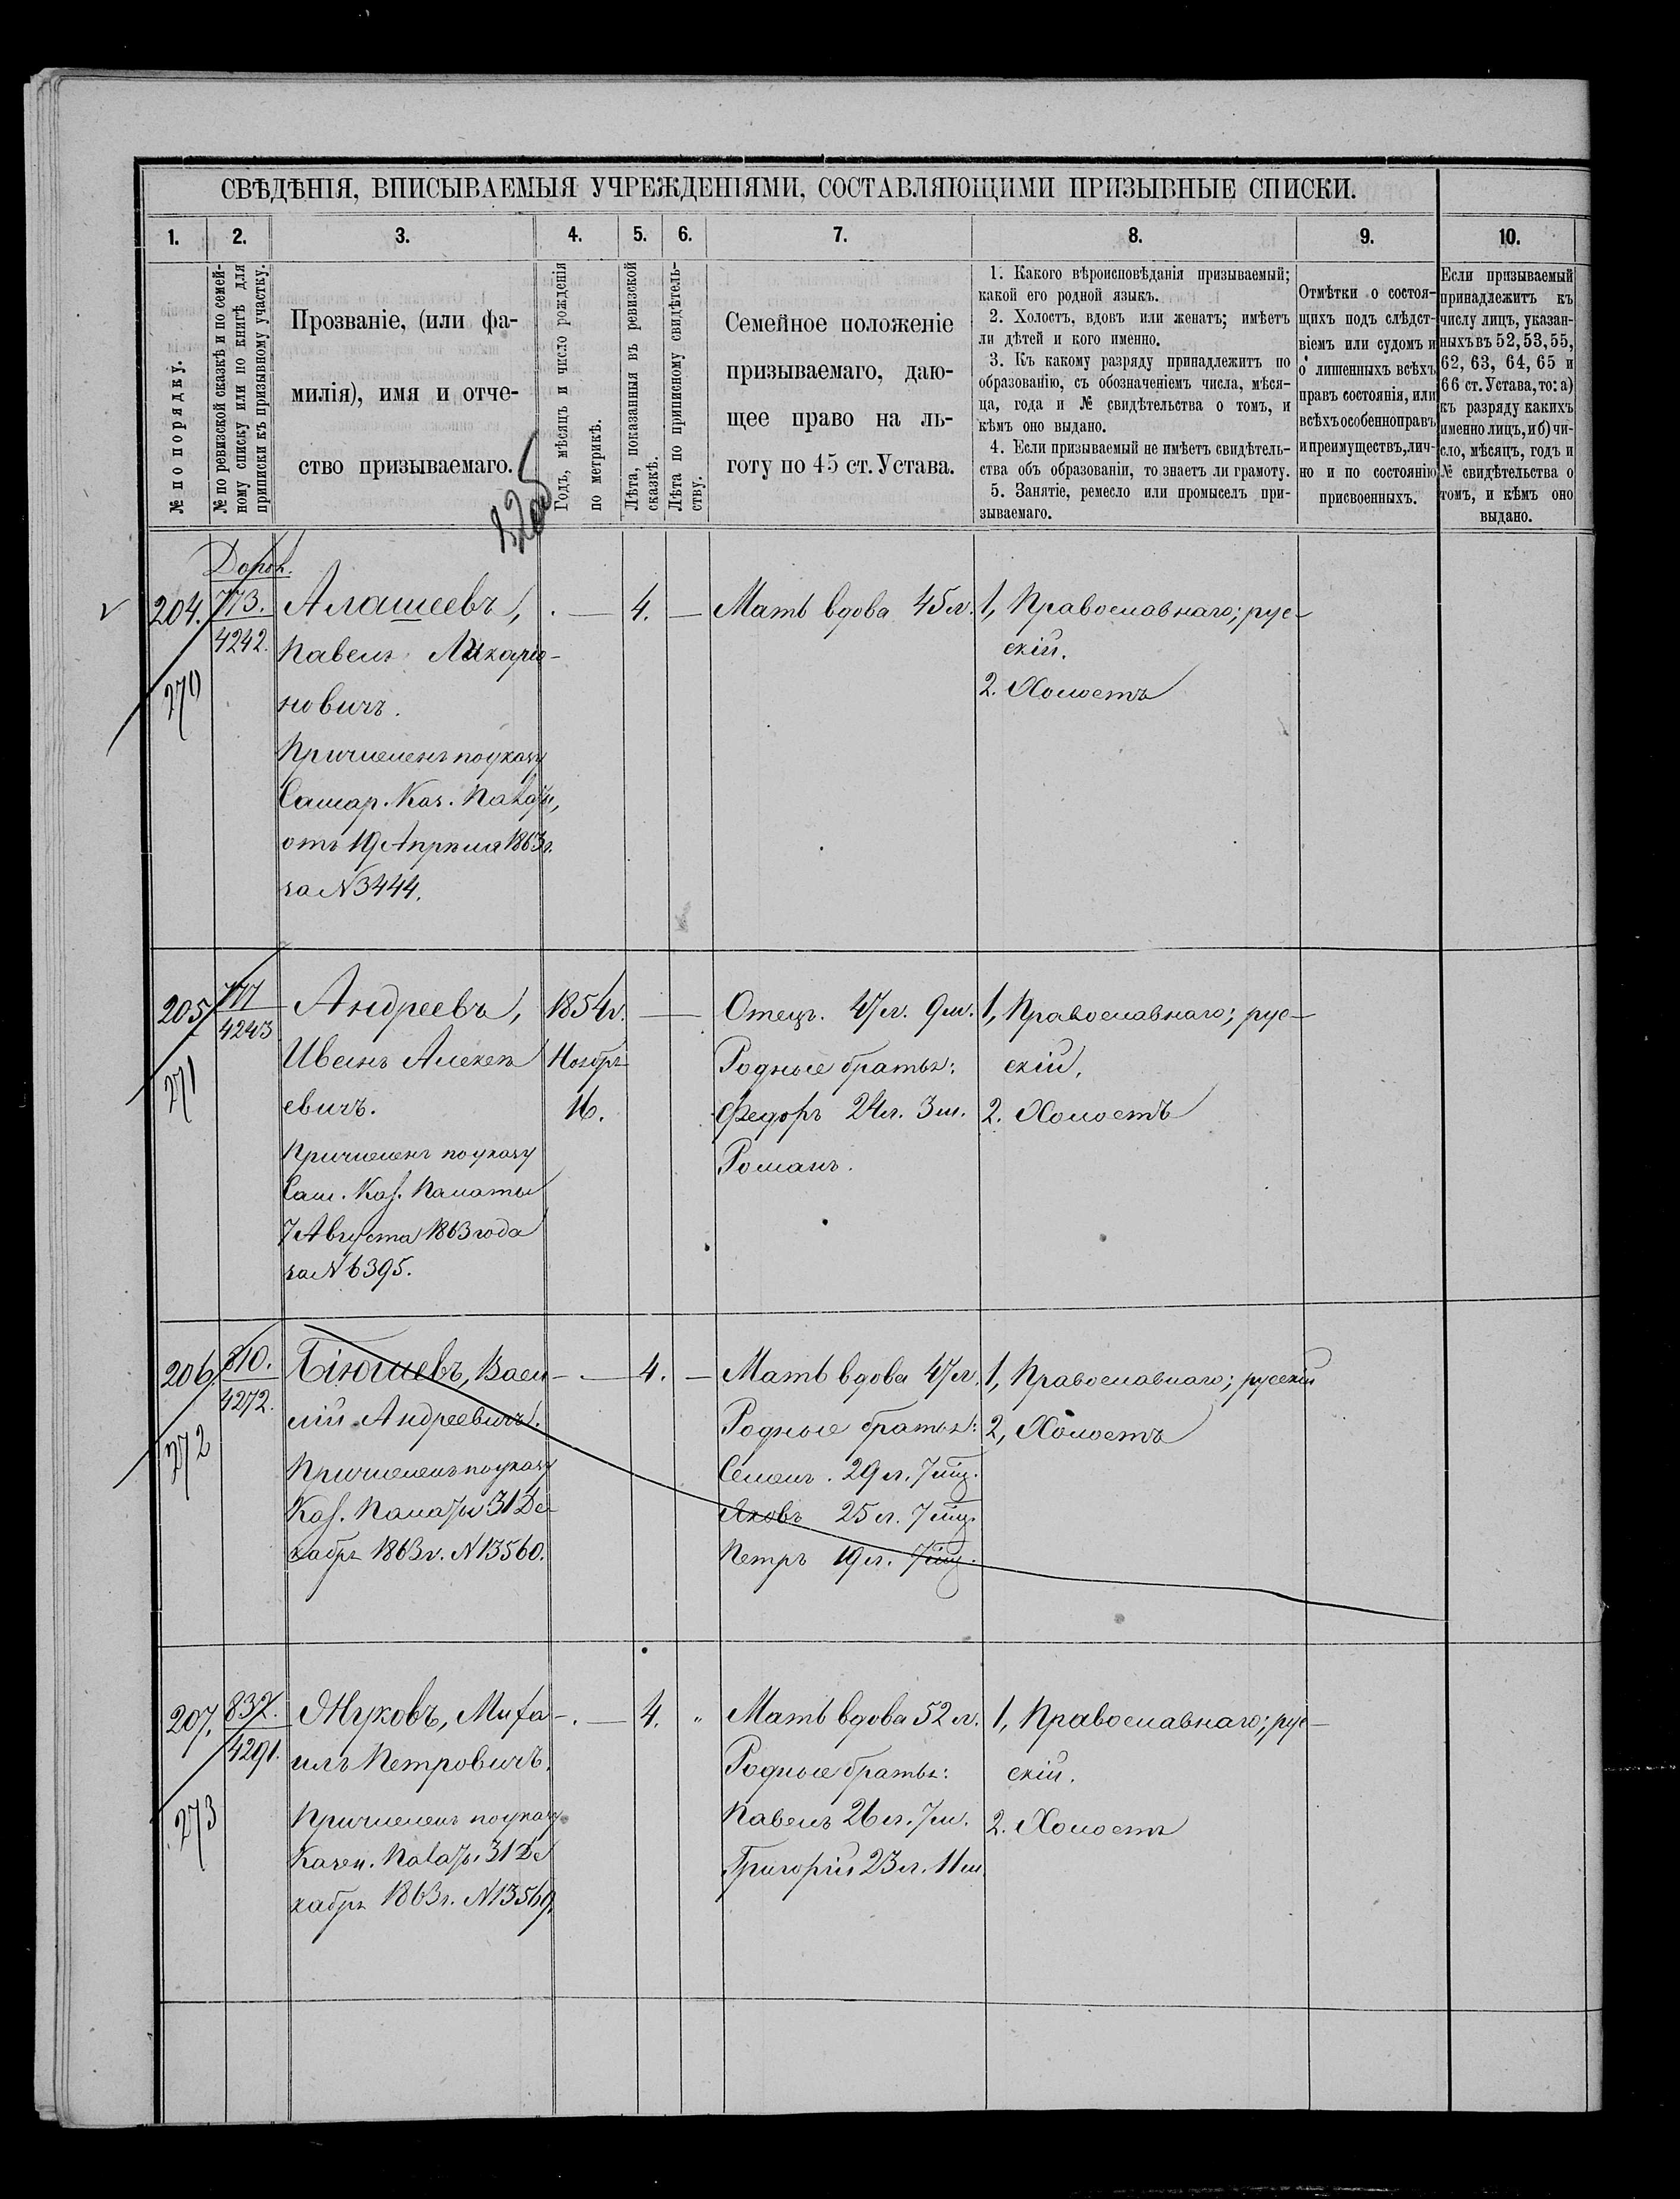 СВѢДѢНІЯ, ВПИСЫВАЕМЫЯ УЧРЕЖДЕНІЯМИ, СОСТАВЛЯЮЩИМИ ПРИЗЫВНЫЕ СПИСКИ.
1.
2.
3.
4.
5.
6.
7.
8.
9.
10.
№ по порядку.
№ по ревизской сказкѣ и по семей-
ному списку или по книгѣ для
приписки къ призывному участку.
Прозваніе, (или фа-
милія), имя и отче-
ство призываемаго.
Годъ, мѣсяцъ и число рожденія
по метрикѣ.
Лѣта, показанныя въ ревизской
сказкѣ.
Лѣта по приписному свидѣтель-
ству.
Семейное положеніе
призываемаго, даю-
щее право на ль-
готу по 45 ст. Устава.
1. Какого вѣроисповѣданія призываемый;
какой его родной языкъ.
2. Холостъ, вдовъ или женатъ; имѣетъ
ли дѣтей и кого именно.
3. Къ какому разряду принадлежитъ по
образованію, съ обозначеніемъ числа, мѣся-
ца, года и № свидѣтельства о томъ, и
кѣмъ оно выдано.
4. Если призываемый не имѣетъ свидѣтель-
ства объ образованіи, то знаетъ ли грамоту.
5. Занятіе, ремесло или промыселъ при-
зываемаго.
Отмѣтки о состоя-
щихъ подъ слѣдст-
віемъ или судомъ и
о лишенныхъ всѣхъ
правъ состоянія, или
всѣхъ особенно правъ
и преимуществъ, лич-
но и по состоянію
присвоенныхъ.
Если призываемый
принадлежитъ къ
числу лицъ, указан-
ныхъ въ 52, 53, 55,
62, 63, 64, 65 и
66 ст. Устава, то: а)
къ разряду какихъ
именно лицъ, и б) чи-
сло, мѣсяцъ, годъ и
№ свидѣтельства о
томъ, и кѣмъ оно
выдано.
204.
270
773.
4242.
Алашеевъ,
Павелъ Илларіо-
новичъ.
Причисленъ по указу
Самар. Каз. Палаты,
отъ 19 Апрѣля 1863 г.
за N 3444.
4.
Мать вдова 45 л.
1, Православнаго; рус-
скій.
2. Холостъ
205
271
777
4243
Андреевъ,
Иванъ Алексѣ
евичъ.
Причисленъ по указу
Сам. Каз. Палаты
7 Августа 1863 года
за N 6395.
1854 г.
Ноябрь
16.
Отецъ. 47 л. 9 м.
Родные братья:
Федоръ 24 л. 3 м.
Романъ.
1, Православнаго; рус-
скій.
2. Холостъ
206.
272
810.
4272.
Бѣюшевъ, Васи-
лій Андреевичъ.
Причисленъ по указу
Каз. Палаты 31 Де-
кабря 1863 г. N 13560.
4.
Мать вдова 47 л.
Родные братья:
Семенъ. 29 л. 7 мц.
Яковъ 25 л. 7 мц.
Петръ 19 л. 7 мц.
1, Православнаго; русскій
2, Холостъ
207.
273
832.
4291.
Жуковъ, Миха-
илъ Петровичъ.
Причисленъ по указу
Казен. Палаты 31 Де
кабря 1863 г. N 13560.
4.
"
Мать вдова 52 л.
Родные братья:
Павелъ 26 л. 7 м.
Григорій 23 л. 11 м.
1, Православнаго; рус-
скій.
2. Холостъ